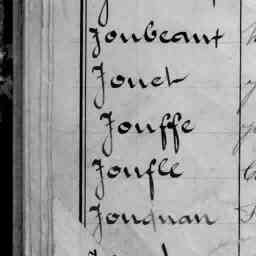 Joubeaut
Jouet
Jouffe
Joufle
Jouquan